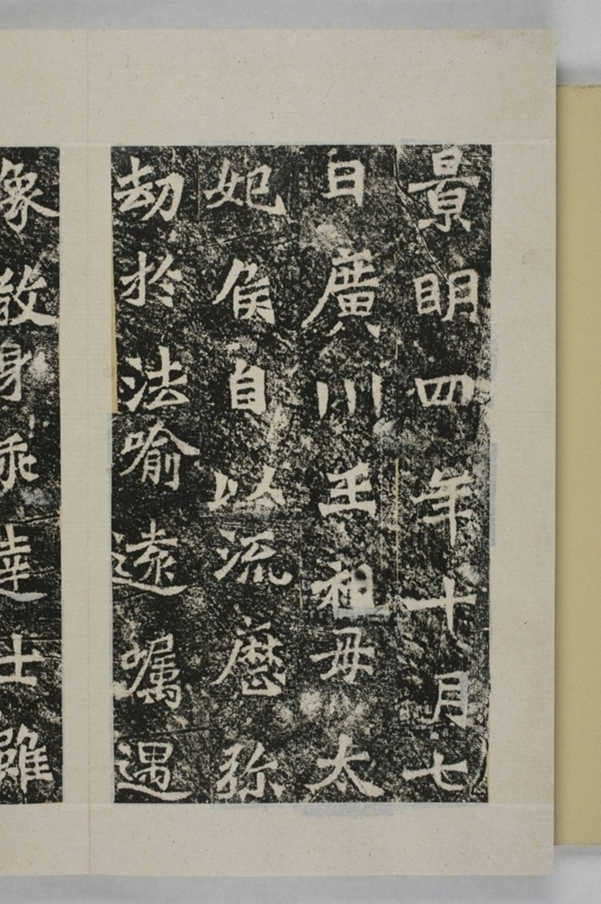 景明四年十月七
日廣川王祖母太
妃侯自以流歷弥
劫於法喻遠囑遇
像教身乘達士雖